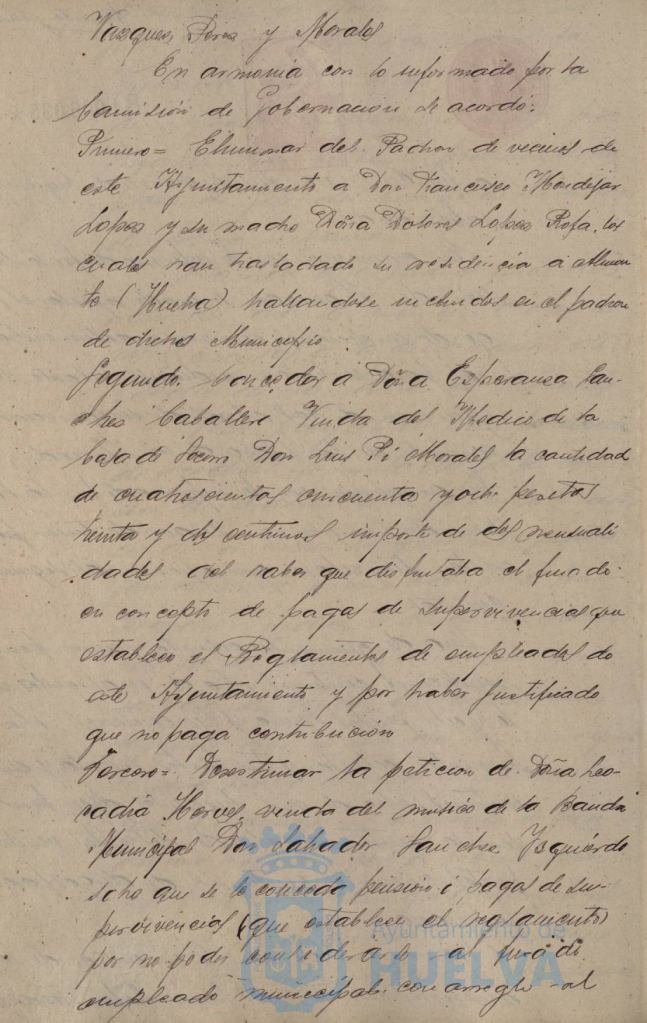 Vazquez, Perez y Morales
En armonia con lo informado por la
Comisión de Gobernacion se acordó:
Primero= Eliminar del Padron de vecinos de
este Ayuntamiento a Don Francisco Mondejar
Lopez y su madre Doña Dolores Lopez Rofa, los
cuales han trasladado su residencia a Almon-
te (Huelva) hallandose incluidos en el padron
de dichos Municipio.
Segundo. Conceder a Doña Esperanza San-
chez Caballero Viuda del Medico de la
Casa de Socorro Don Luis Pi Morales la cantidad
de cuatrocientas cincuenta y ocho pesetas
treinta y dos centimos importe de dos mensuali
dades del haber que disfrutaba el finado
en concepto de pagas de supervivencias que
establece el Reglamentos de empleados de
este Ayuntamiento y por haber justificado
que no paga contribución
Tercero= Desestimar la peticion de Doña Leo-
cadia viuda del musico de la Banda
Municipal Don Salvador Sanchez Yzquierdo
sobre que se le conceda pension i pagas de su-
pervivencias (que establece el reglamento)
por no poder considerarse al finado
empleado municipal con arreglo al
Ayuntamiento de
HUELVA